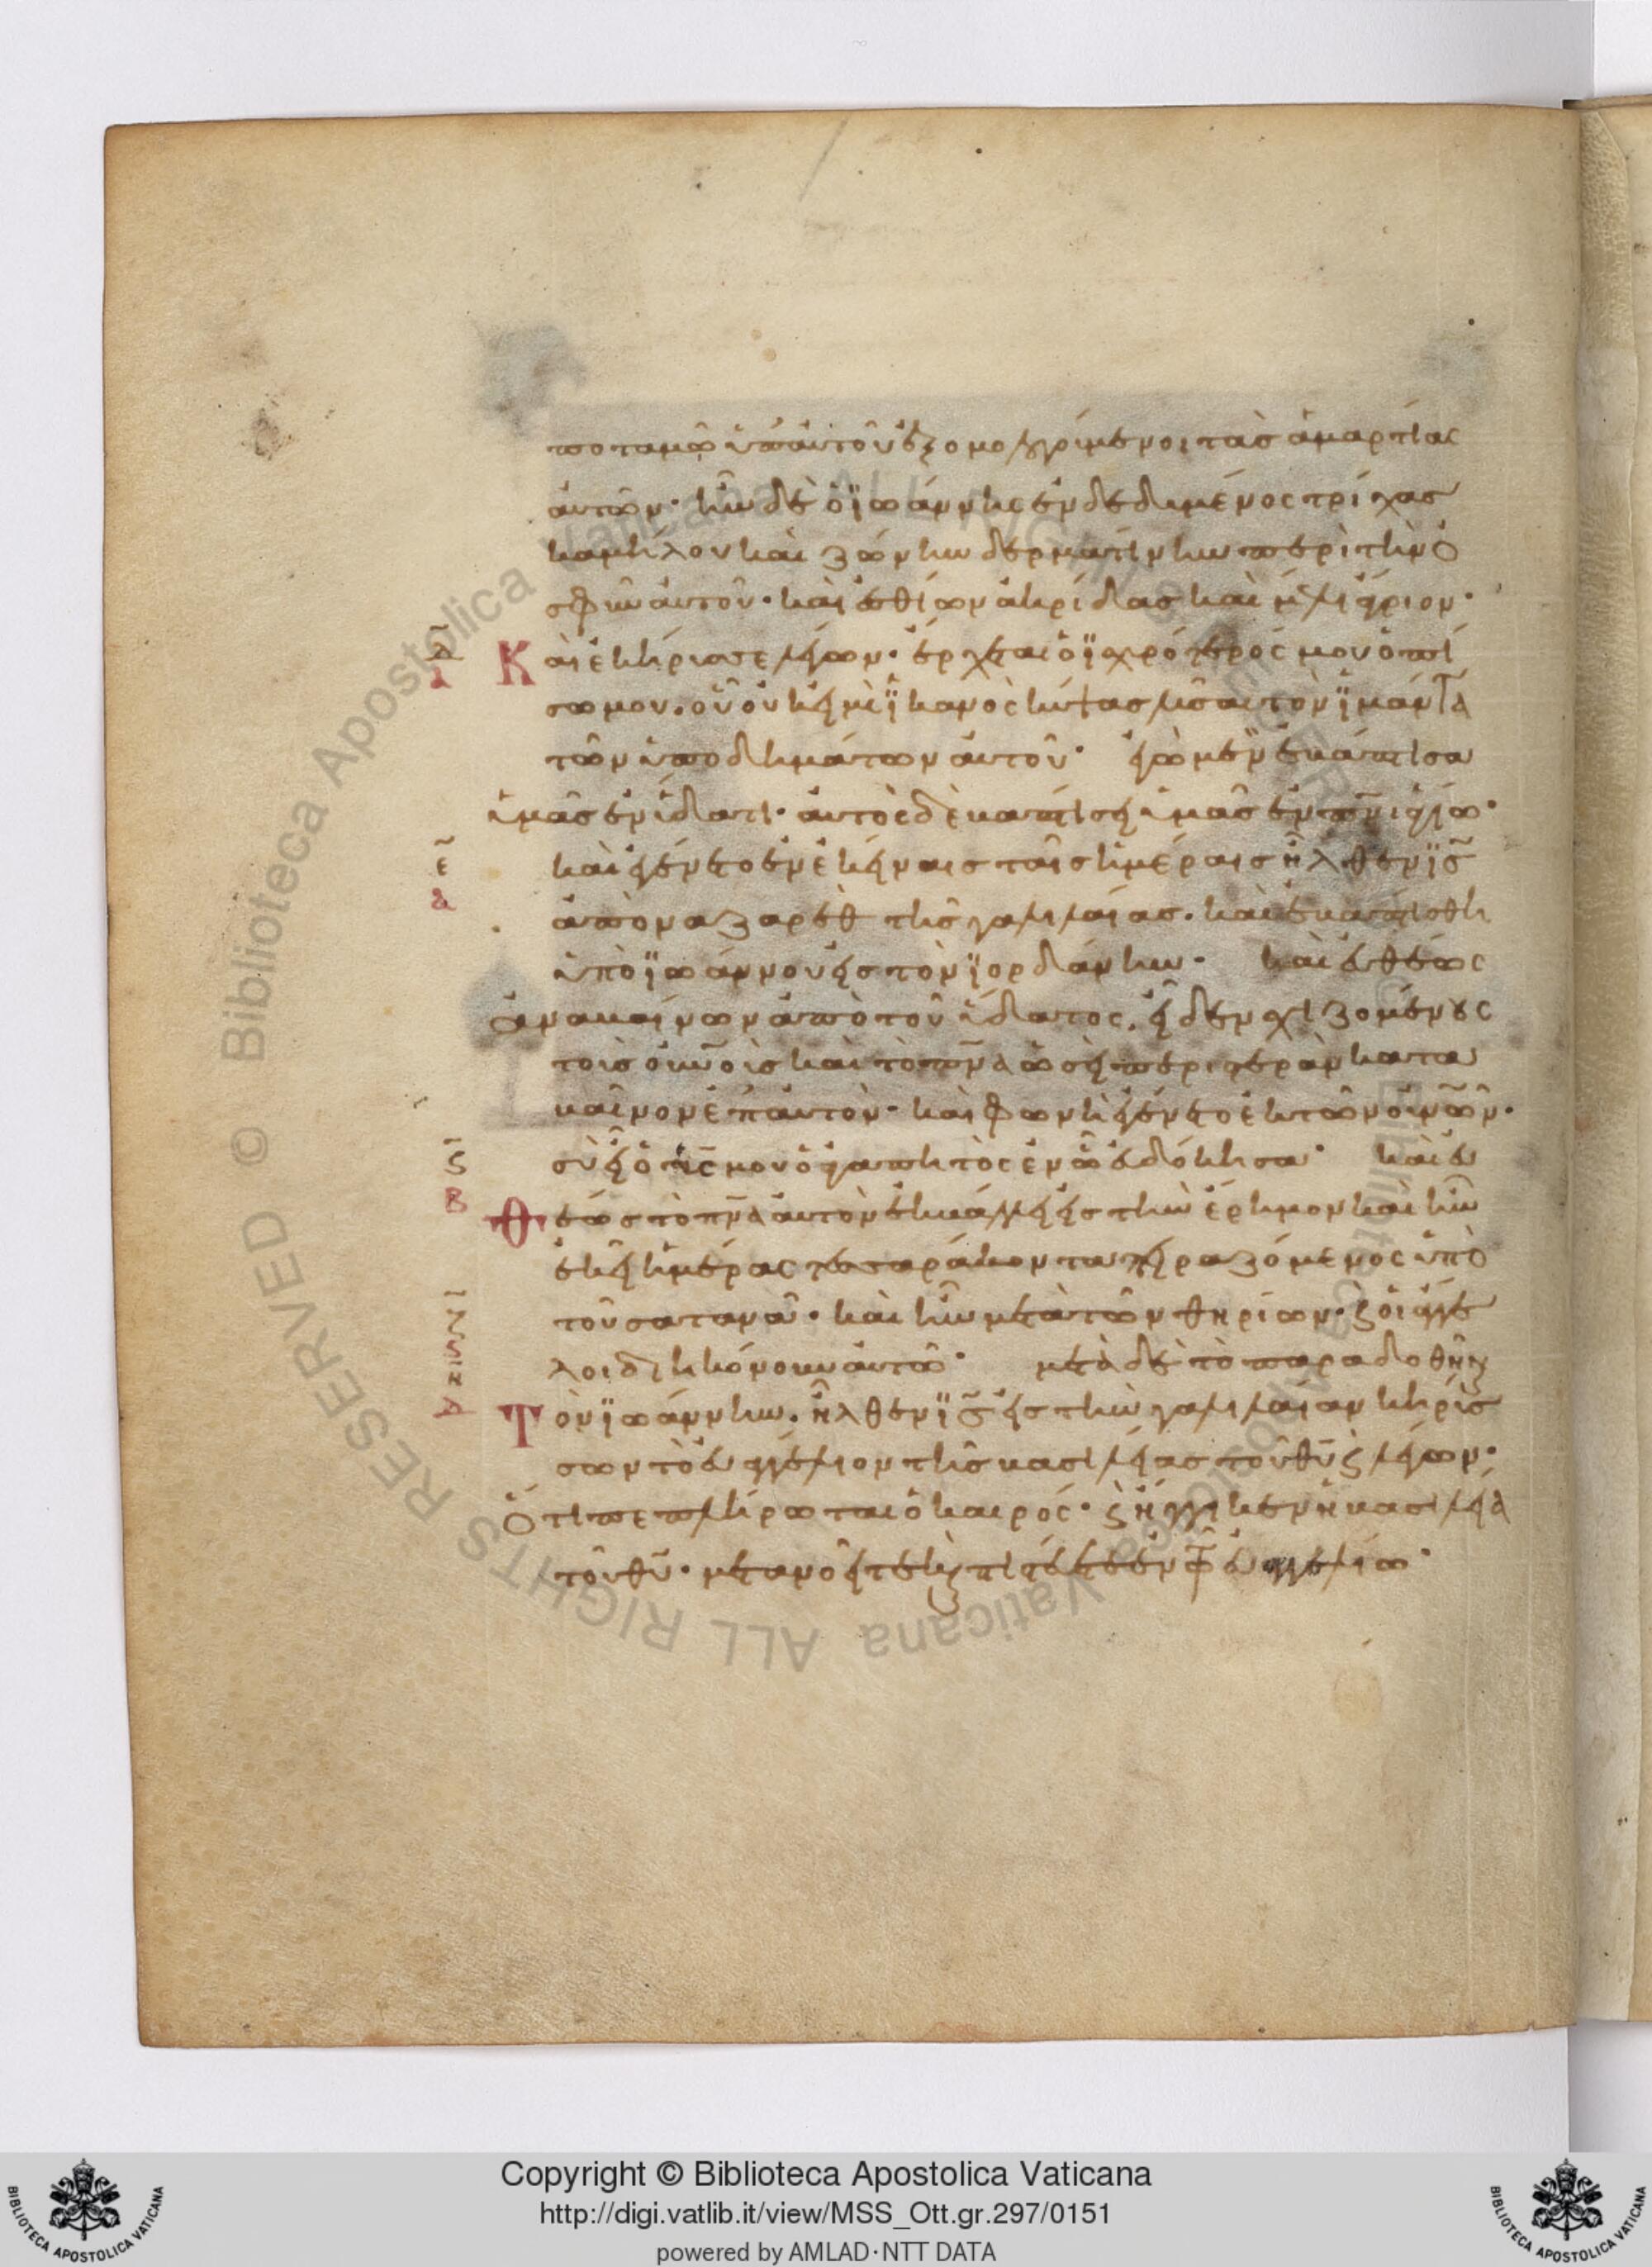 ποταμῷ ὑπ' αὐτοῦ ἐξομολογούμενοι τὰς ἁμαρτίας
αὐτῶν· ἦν δὲ ὁ ϊωάννης ἐνδεδυμένος τρίχας
καμήλου καὶ ζώνην δερματίνην περὶ τὴν ὀ
σφὺν αὐτοῦ· καὶ ἐσθίων ἀκρίδας καὶ μέλι ἄγριον·
δ̄
α
Καὶ ἐκήρυσσε λέγων· ἔρχεται ὁ ϊσχυρότερός μου ὀπί
σω μου. οὗ οὐκ εἰμὶ ϊκανὸς κύψας λῦσαι τὸν ϊμάντα
τῶν ὑποδημάτων αὐτοῦ· ἐγὼ μὲν ἐβάπτισα
ὑμᾶς ἐν ὕδατι· αὐτὸς δὲ βαπτίσει ὑμᾶς ἐν πνι ἁγίω·
ε̄
α
καὶ ἐγένετο ἐν ἐκείναις ταῖς ἡμέραις ἦλθεν ϊς
ἀπὸ ναζαρὲθ τῆς γαλιλαίας. καὶ ἐβαπτίσθη
ὑπὸ ϊωάννου εἰς τὸν ϊορδάνην· καὶ εὐθέως
ἀναβαίνων ἀπὸ τοῦ ὕδατος. εἶδεν σχιζομένους
τοὺς οὐνοὺς καὶ τὸ πνα ὡσεὶ περιστερὰν κατα
βαῖνον ἐπ' αὐτόν· καὶ φωνὴ ἐγένετο ἐκ τῶν οὐνῶν·
ς̄
β
σὺ εἶ ὁ υς μου ὁ ἀγαπητὸς ἐν ᾧ εὐδόκησα· καὶ εὐ
θέως τὸ πνα αὐτὸν ἐκβάλλει εἰς τὴν ἔρημον καὶ ἦν
ἐκεῖ ἡμέρας τεσσαράκοντα πειραζόμενος ὑπὸ
ζ̄
ς
τοῦ σατανᾶ· καὶ ἦν μετὰ τῶν θηρίων· ϗ οἱ ἄγγε
λοι διηκόνουν αὐτῷ· μετὰ δὲ τὸ παραδοθῆναι
η̄
δ
Τὸν ϊωάννην. ἦλθεν ϊς εἰς τὴν γαλιλαίαν κηρύσ
σων τὸ εὐαγγέλιον τῆς βασιλείας τοῦ θυ ϗ λέγων·
Ὅτι πεπλήρωται ὁ καιρός· ϗ ἤγγικεν ἡ βασιλεία
τοῦ θυ· μετανοεῖτε καὶ πιστεύετε ἐν τῷ εὐαγγελίω·
Biblioteca Apostolica Vaticana ALL RIGHTS RESERVED ©
Biblioteca Apostolica Vaticana ALL RIGHTS RESERVED ©
Copyright © Biblioteca Apostolica Vaticana
http://digi.vatlib.it/view/MSS_Ott.gr.297/0151
powered by AMLAD·NTT DATA
BIBLIOTECA APOSTOLICA VATICANA
BIBLIOTECA APOSTOLICA VATICANA